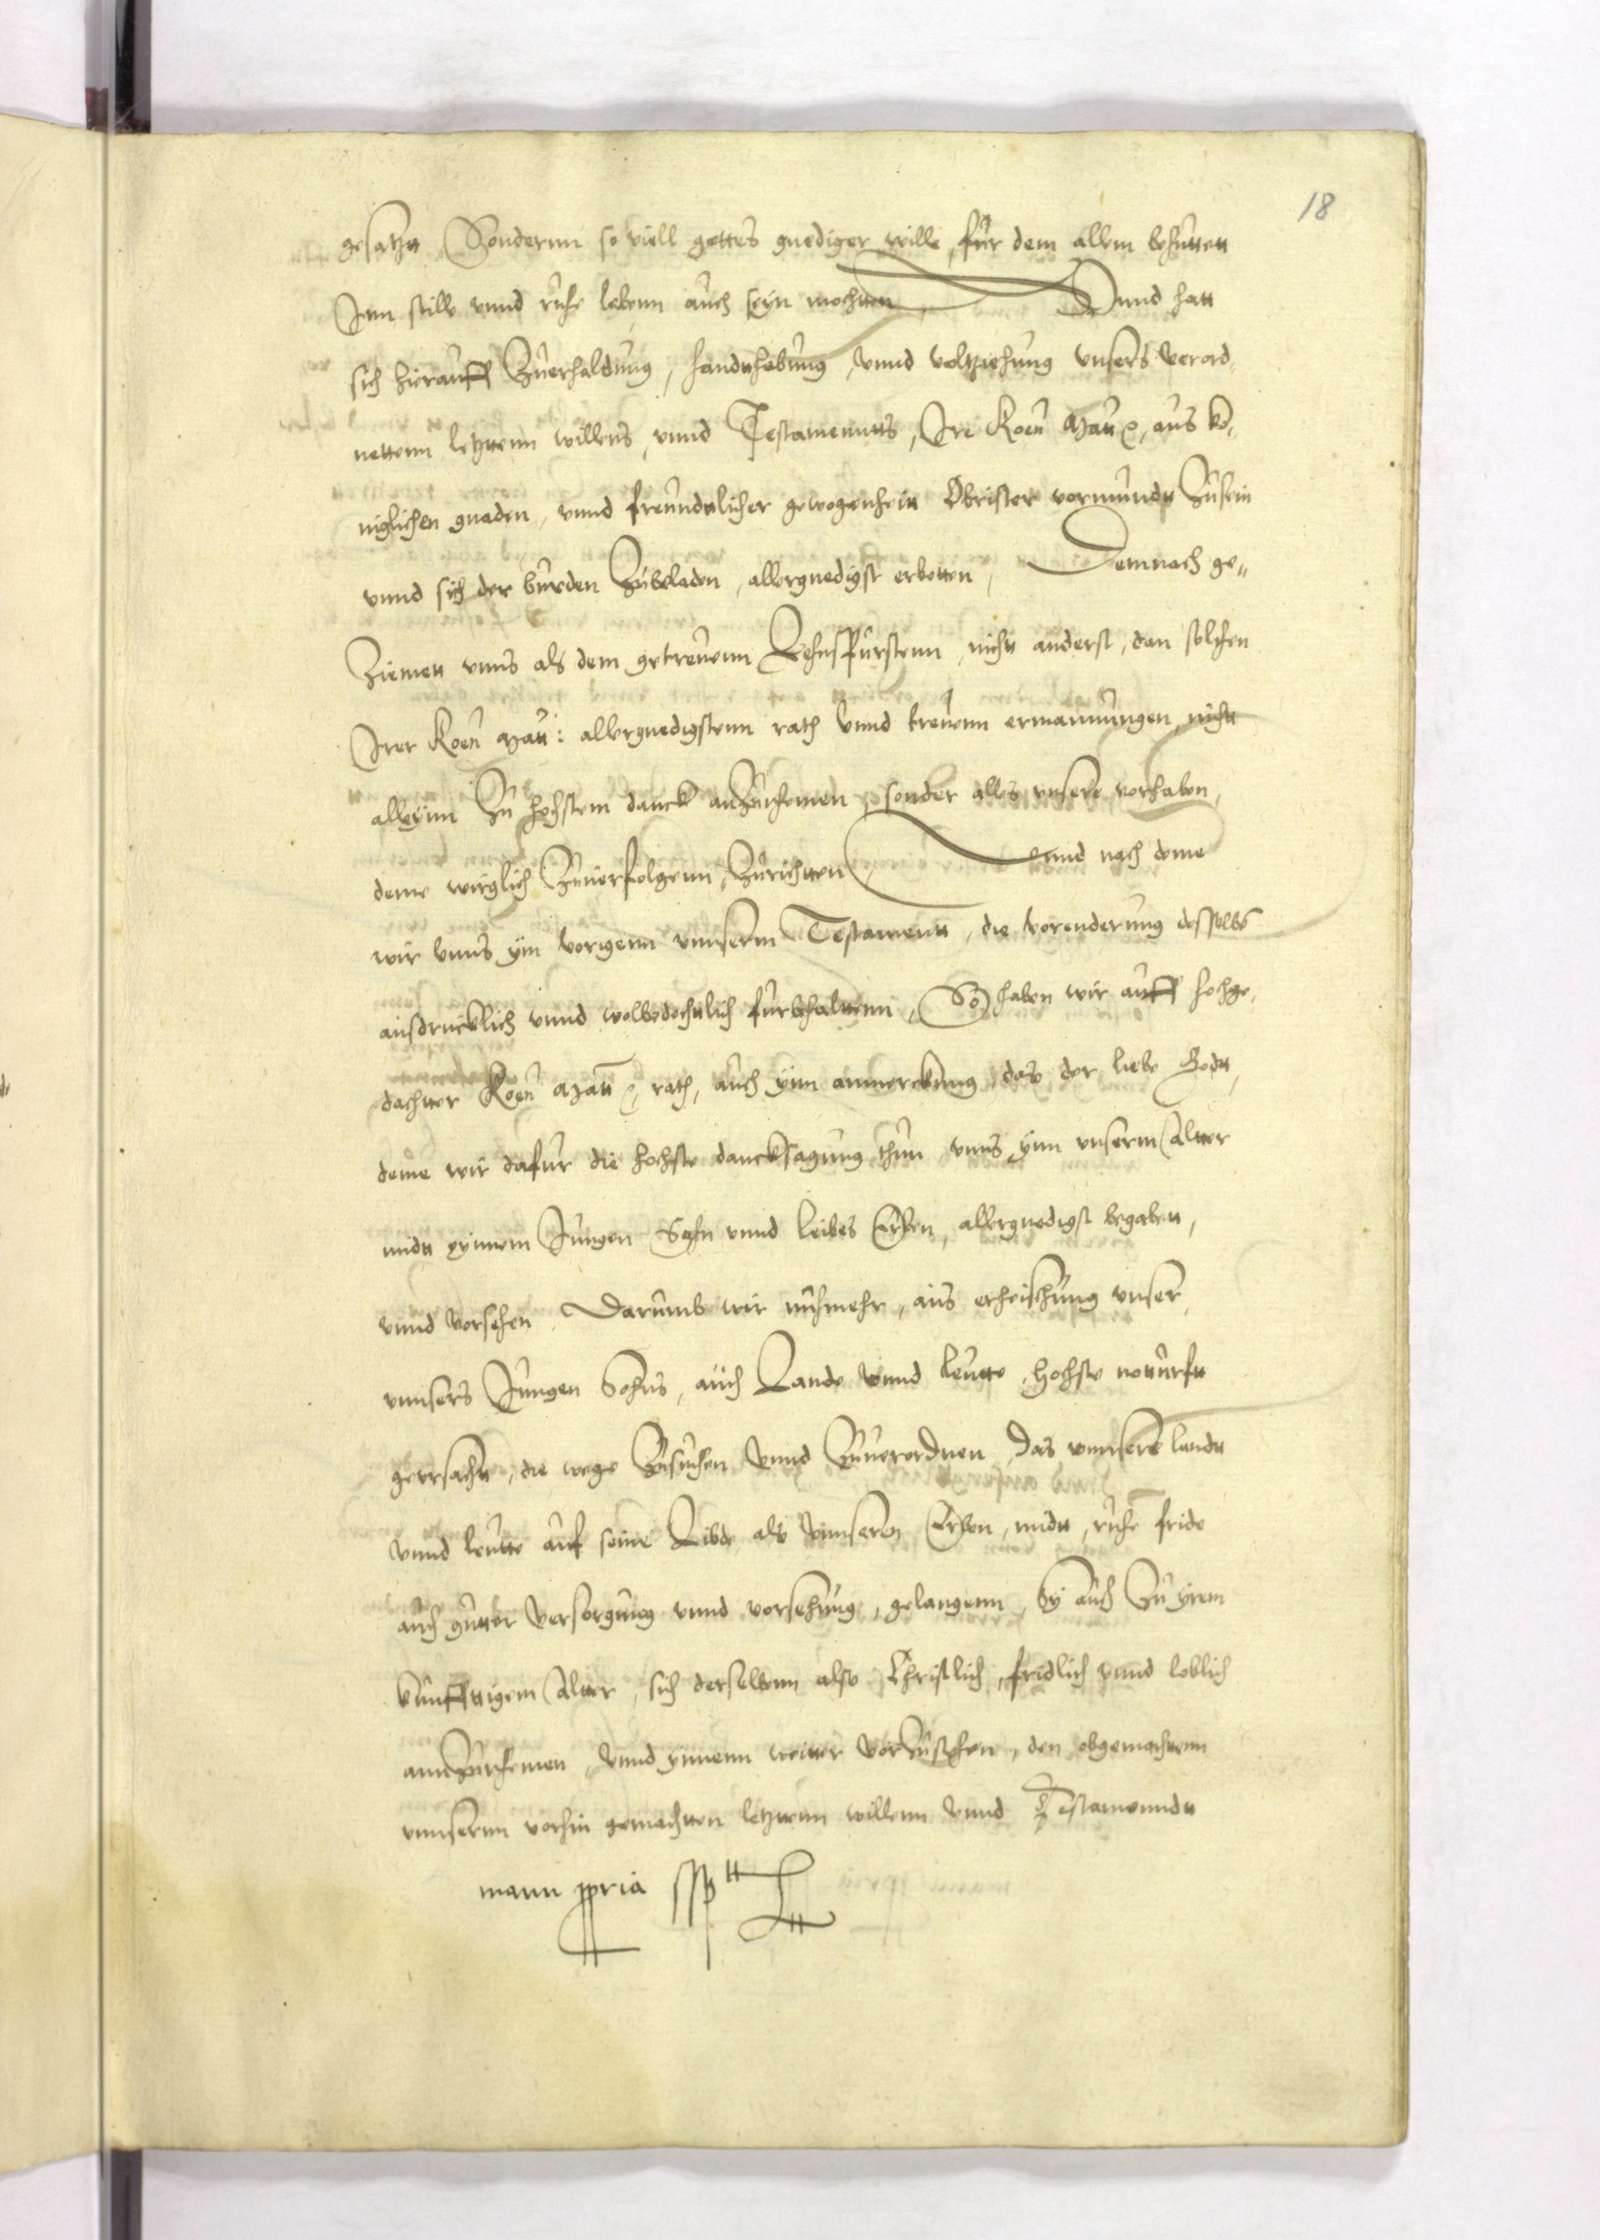 18
gesatztt Sondernn so viell gottes gnediger wille, fur dem allem behuttett
Inn stille vnnd ruhe lebenn auch seyn mochtten, Vnnd hatt
sich hierauff Zuerhaldung, handtthabung, vnnd voltziehung vnsers verord,
nettenn letzttenn willens, vnnd Testamenntts, Ire Koen Matt, aus ko,
niglichen gnaden, vnnd freundtlicher gewogenheitt Obrister vormundtt Zusein
vnnd sich der burden Zubeladen, allergnedigst erbotten, Demnach ge,,
Ziemett vnns als dem getreuenn Lehnsfurstenn, nichtt anderst, dan solchen
Irer Koen Matt: allergnedigstenn rath vnnd treuenn ermannungen, nichtt
alleynn Zu hochstem danck anZunhemen, sonder alles vnsers vorhaben,
deme wirglich Zuuerfolgenn, Zurichtten, Vnnd nach deme
wir vnns ym vorigenn vnnserm Testamentt, die vorenderung desselbe
ausdrucklich vnnd wolbedechtlich furbehalttenn, So haben wir auff hochge,
dachtter Koen Matt, rath, auch ynn anmerckung, das der liebe Godtt,
deme wir dafur die hochste dancksagung thun vnns ynn vnserm Altter
midtt eynnem Jungen Sohn vnnd leibes Erben, allergnedigst begabett,
vnnd vorsehen. Darumb wir nuhmehr, aus erheischung vnser,
vnnsers Jungen Sohns, auch Lande vnnd leutte, hochste notturfft
geursachtt, die wege Zusuchen vnnd Zuuerordnen, das vnnsere landtt
vnnd leutte auf seine Liebde als vnnseren Erben, midtt, ruhe fride
auch gutter versorgung vnnd vorsehung, gelangenn, Sy auch Zu yrem
kunfftigem Altter, sich derselbenn also Christlich, fridlich vnnd loblich
annZunhemen, vnnd ynnenn weitter vorZustehen, den obgemachtenn
vnnserm vorhin gemachtten letzttenn willenn vnnd Testamenndtt
manu ppria sspt